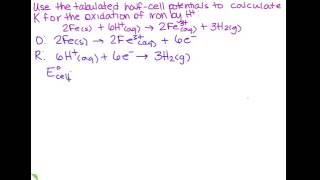 Use the tabulated half-cell potentials to calculate
K for the oxidation of iron by H⁺.
2Fe(s) + 6H⁺(aq) → 2Fe³⁺(aq) + 3H₂(g)
O: 2Fe(s) → 2Fe³⁺(aq) + 6e⁻
R: 6H⁺(aq) + 6e⁻ → 3H₂(g)
E°cell